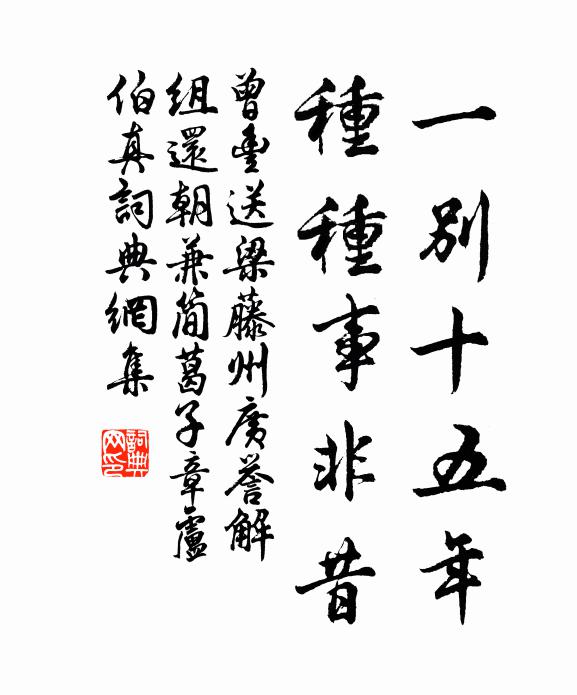 一別十五年
種種事非昔
曾豊送梁藤州廣譽解
組還朝兼簡葛子章盧
伯真詞典網集
詞典网印